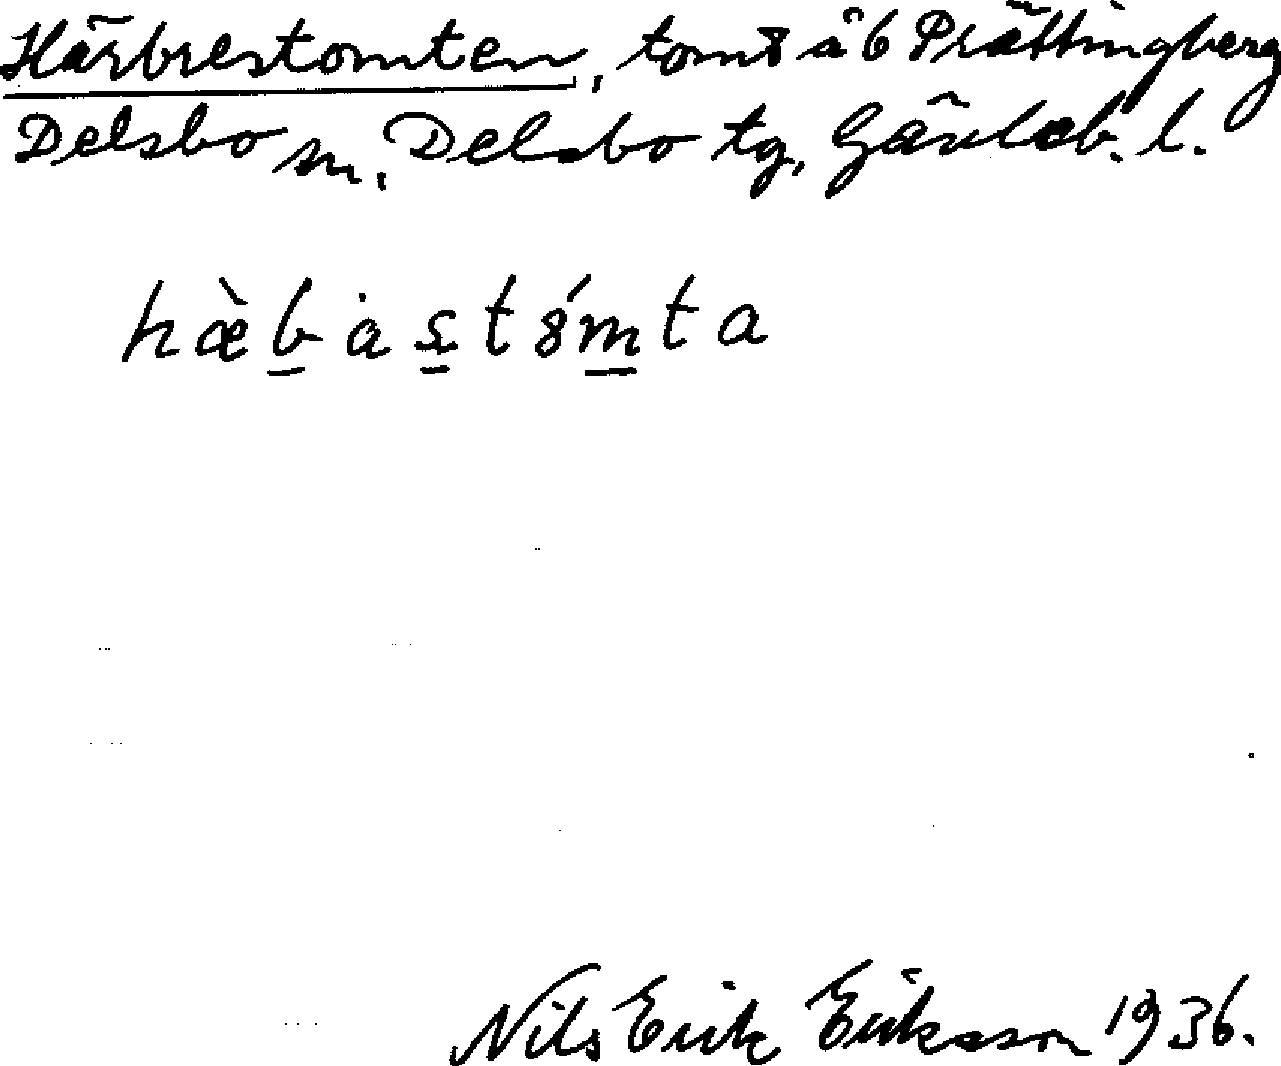 Härbrestomten, tomt å 6 Prästtingberg
Delsbo sn, Delsbo tg, Gävleb. l.
hæ̀b̲ȧs̲tǿm̲ta
Nils Erik Eriksson 1936.